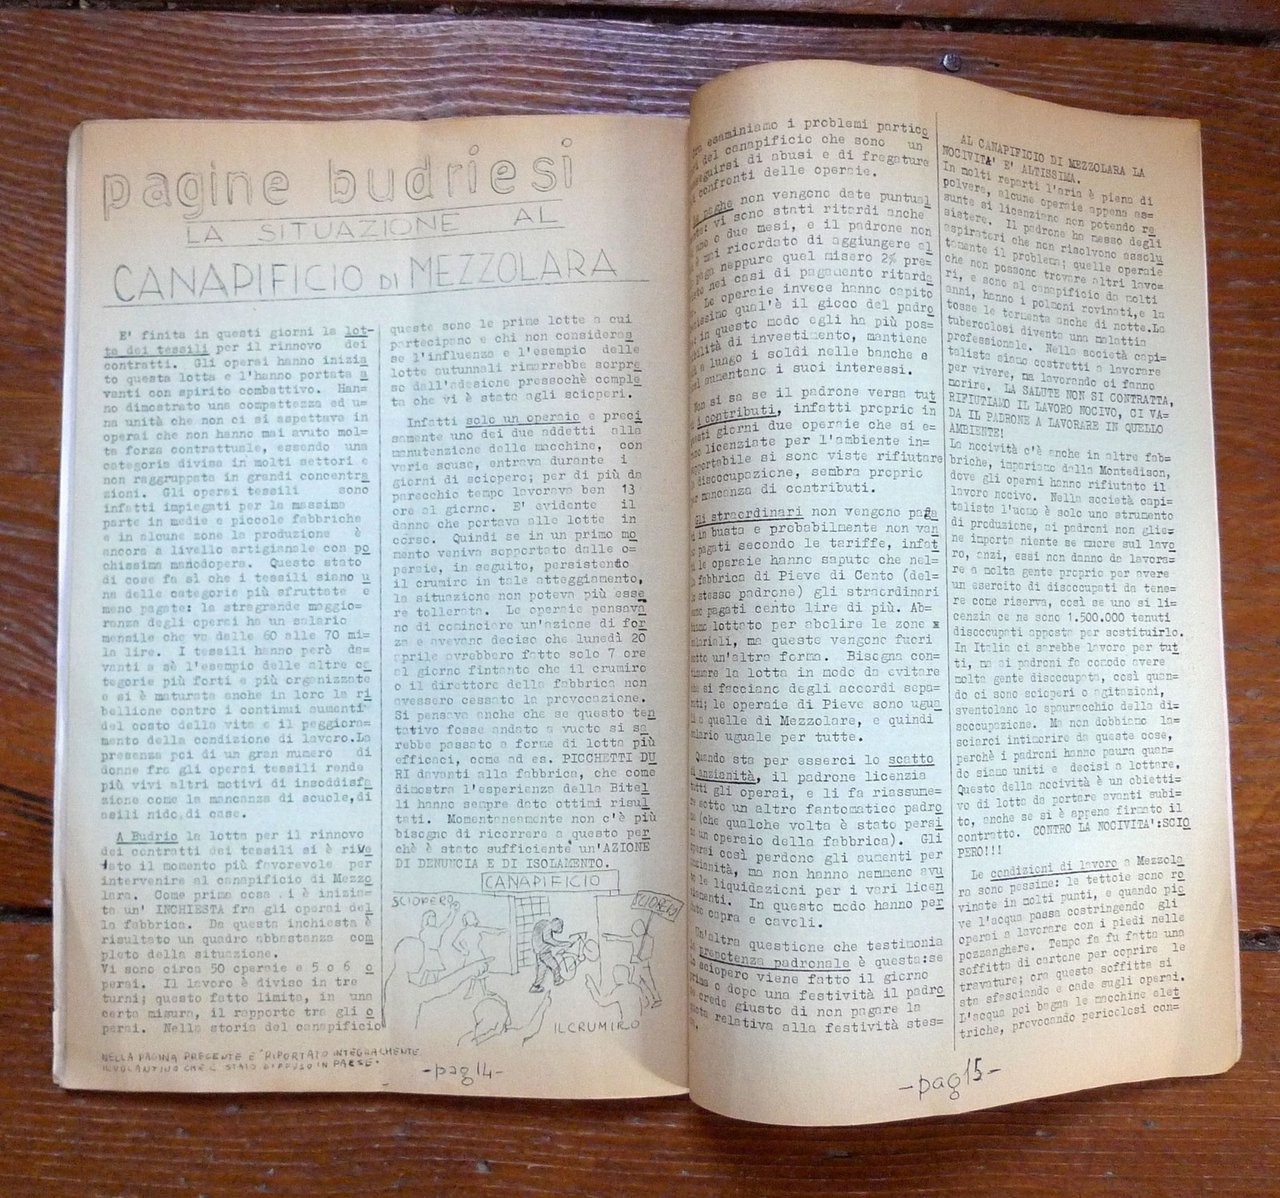 pagine budriesi
LA SITUAZIONE AL
CANAPIFICIO DI MEZZOLARA
E' finita in questi giorni la lot-
ta dei tessili per il rinnovo dei
contratti. Gli operai hanno inizia
to questa lotta e l'hanno portata a
vanti con spirito combattivo. Han-
no dimostrato una compattezza ed u-
na unità che non ci si aspettava in
operai che non hanno mai avuto mol-
ta forza contrattuale, essendo una
categoria divisa in molti settori e
non raggruppata in grandi concentra
zioni. Gli operai tessili sono
infatti impiegati per la massima
parte in medie e piccole fabbriche
e in alcune zone la produzione è
ancora a livello artigianale con po
chissima manodopera. Questo stato
di cose fa sì che i tessili siano u
na delle categorie più sfruttate e
meno pagate: la stragrande maggio-
ranza degli operai ha un salario
mensile che va dalle 60 alle 70 mi-
la lire. I tessili hanno però da-
vanti a sè l'esempio delle altre ca
tegorie più forti e più organizzate
e si è maturata anche in loro la ri
bellione contro i continui aumenti
del costo della vita e il peggiora-
mento della condizione di lavoro.La
presenza poi di un gran numero di
donne fra gli operai tessili rende
più vivi altri motivi di insoddisfa
zione come la mancanza di scuole,di
asili nido,di case.
A Budrio la lotta per il rinnovo
dei contratti dei tessili si è rive
lato il momento più favorevole per
intervenire al canapificio di Mezzo
lara. Come prima cosa i è inizia=
ta un' INCHIESTA fra gli operai del
la fabbrica. Da questa inchiesta è
risultato un quadro abbastanza com
pleto della situazione.
Vi sono circa 50 operaie e 5 o 6 o
perai. Il lavoro è diviso in tre
turni; questo fatto limita, in una
certa misura, il rapporto tra gli o
perai. Nella storia del canapificio
NELLA PAGINA PRECENTE E' RIPORTATO INTEGRALMENTE
IL VOLANTINO CHE È STATO DIFFUSO IN PAESE.
queste sono le prime lotte a cui
partecipano e chi non considerasa
se l'influenza e l'esempio delle
lotte autunnali rimarrebbe sorpre
so dall'adesione pressochè comple
ta che vi è stata agli scioperi.
Infatti solo un operaio e preci
samente uno dei due addetti alla
manutenzione delle macchine, con
varie scuse, entrava durante i
giorni di sciopero; per di più da
parecchio tempo lavorava ben 13
ore al giorno. E' evidente il
danno che portava alle lotte in
corso. Quindi se in un primo mo
mento veniva sopportato dalle o-
peraie, in seguito, persistendo
il crumiro in tale atteggiamento,
la situazione non poteva più esse
re tollerata. Le operaie pensava
no di cominciare un'azione di for
za e avevano deciso che lunedì 20
aprile avrebbero fatto solo 7 ore
al giorno fintanto che il crumiro
o il direttore della fabbrica non
avessero cessato la provocazione.
Si pensava anche che se questo ten
tativo fosse andato a vuoto si sa
rebbe passato a forme di lotta più
efficaci, come ad es. PICCHETTI DU
RI davanti alla fabbrica, che come
dimostra l'esperienza della Bitel
li hanno sempre dato ottimi risul
tati. Momentaneamente non c'è più
bisogno di ricorrere a questo per
chè è stato sufficiente un'AZIONE
DI DENUNCIA E DI ISOLAMENTO.
CANAPIFICIO
SCIOPERO
SCIOPERO
IL CRUMIRO
-pag 14-
esaminiamo i problemi partico
del canapificio che sono un
seguirsi di abusi e di fregature
confronti delle operaie.
paghe non vengono date puntual
vi sono stati ritardi anche
uno o due mesi, e il padrone non
è mai ricordato di aggiungere al
paga neppure quel misero 2% pre=
nei casi di pagamento ritarda
Le operaie invece hanno capito
benissimo qual'è il gioco del padro
in questo modo egli ha più pos=
di investimento, mantiene
a lungo i soldi nelle banche e
aumentano i suoi interessi.
Non si sa se il padrone versa tut
i contributi, infatti proprio in
questi giorni due operaie che si e-
licenziate per l'ambiente in-
sopportabile si sono viste rifiutare
disoccupazione, sembra proprio
per mancanza di contributi.
Gli straordinari non vengono paga
in busta e probabilmente non van
pagati secondo le tariffe, infat
le operaie hanno saputo che nel=
fabbrica di Pieve di Cento (del=
stesso padrone) gli straordinari
pagati cento lire di più. Ab=
lottato per abolire le zone
salariali, ma queste vengono fuori
sotto un'altra forma. Bisogna con=
la lotta in modo da evitare
che si facciano degli accordi sepa=
le operaie di Pieve sono ugua
a quelle di Mezzolara, e quindi
salario uguale per tutte.
Quando sta per esserci lo scatto
anzianità, il padrone licenzia
tutti gli operai, e li fa riassume=
re sotto un altro fantomatico padro
(che qualche volta è stato persi
un operaio della fabbrica). Gli
operai così perdono gli aumenti per
anzianità, ma non hanno nemmeno avu
le liquidazioni per i vari licen
In questo modo hanno per
capra e cavoli.
Un'altra questione che testimonia
prepotenza padronale è questa:se
sciopero viene fatto il giorno
prima o dopo una festività il padro
crede giusto di non pagare la
relativa alla festività stes=
AL CANAPIFICIO DI MEZZOLARA LA
NOCIVITA' E' ALTISSIMA.
In molti reparti l'aria è piena di
polvere, alcune operaie appena as=
sunte si licenziano non potendo re
sistere. Il padrone ha messo degli
aspiratori che non risolvono assolu
tamente il problema; quelle operaie
che non possono trovare altri lavo=
ri, e sono al canapificio da molti
anni, hanno i polmoni rovinati, e la
tosse le tormenta anche di notte.La
tubercolosi diventa una malattia
professionale. Nella società capi=
talista siamo costretti a lavorare
per vivere, ma lavorando ci fanno
morire. LA SALUTE NON SI CONTRATTA,
RIFIUTIAMO IL LAVORO NOCIVO, CI VA=
DA IL PADRONE A LAVORARE IN QUELLO
AMBIENTE!
La nocività c'è anche in altre fab=
briche, impariamo dalla Montedison,
dove gli operai hanno rifiutato il
lavoro nocivo. Nella società capi=
talista l'uomo è solo uno strumento
di produzione, ai padroni non glie=
ne importa niente se muore sul lavo
ro, anzi, essi non danno da lavora=
re a molta gente proprio per avere
un esercito di disoccupati da tene=
re come riserva, così se uno si li=
cenzia ce ne sono 1.500.000 tenuti
disoccupati apposta per sostituirlo.
In Italia ci sarebbe lavoro per tut
ti, ma ai padroni fa comodo avere
molta gente disoccupata, così quan=
do ci sono scioperi o agitazioni,
sventolano lo spauracchio della di=
soccupazione. Ma non dobbiamo la=
sciarci intimorire da queste cose,
perchè i padroni hanno paura quan=
do siamo uniti e decisi a lottare.
Questo della nocività è un obietti=
vo di lotta da portare avanti subi=
to, anche se si è appena firmato il
contratto. CONTRO LA NOCIVITA':SCIO
PERO!!!
Le condizioni di lavoro a Mezzola
ra sono pessime: le tettoie sono ro
vinate in molti punti, e quando pio
ve l'acqua passa costringendo gli
operai a lavorare con i piedi nelle
pozzanghere. Tempo fa fu fatta una
soffitta di cartone per coprire le
travature; ora questa soffitta si
sta sfasciando e cade sugli operai.
L'acqua poi bagna le macchine elet
triche, provocando pericolosi con=
-pag 15-